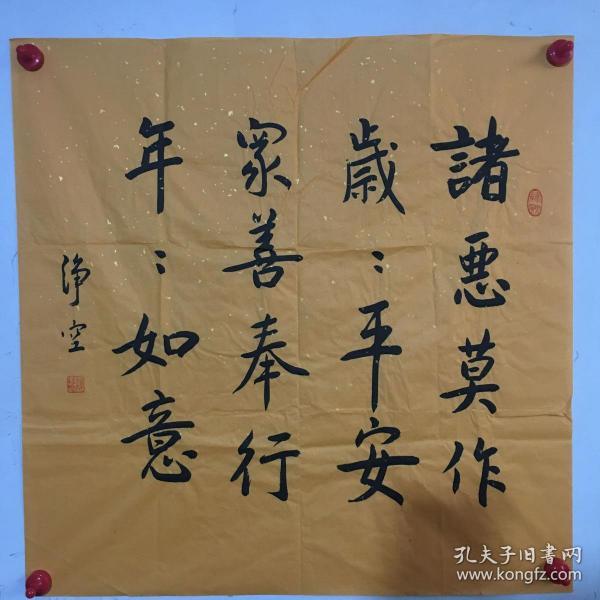 諸惡莫作
歲：平安
眾善奉行
年：如意
淨空
孔夫子旧書网
www.kongfz.com